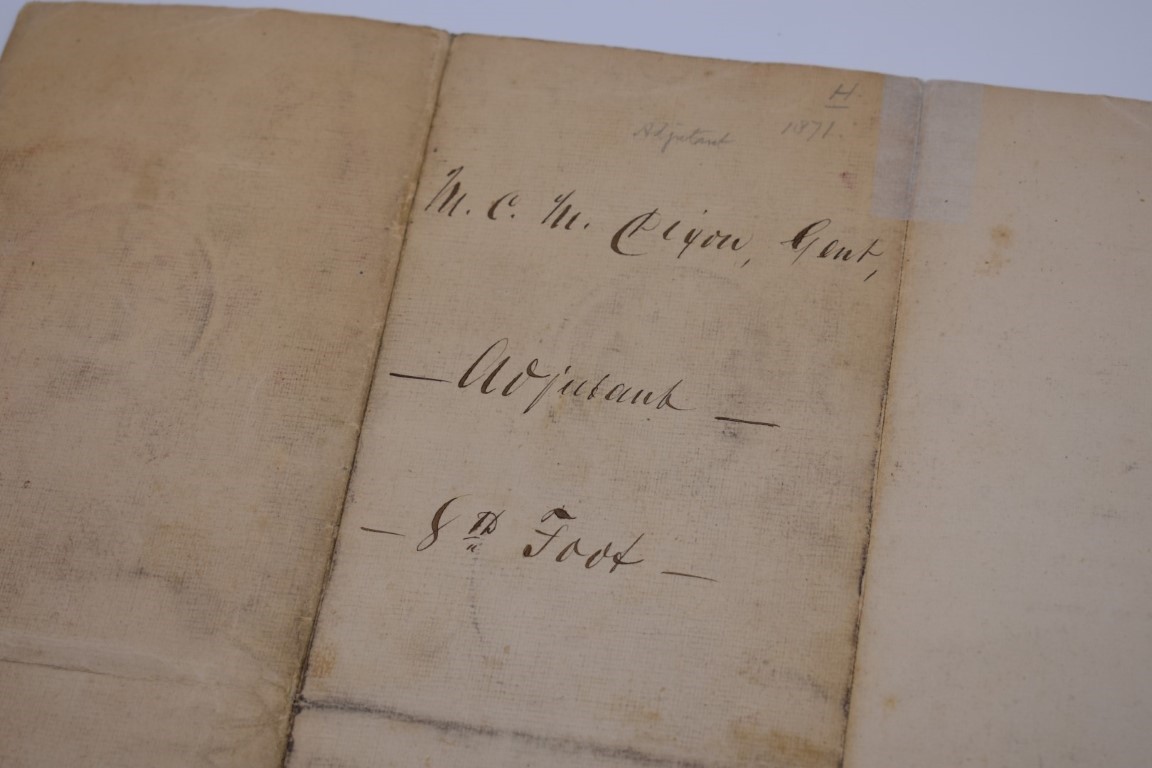 H
Adjutant 1871.
M. C. M. Dixon, Gent,
— Adjutant —
— 8th Foot —